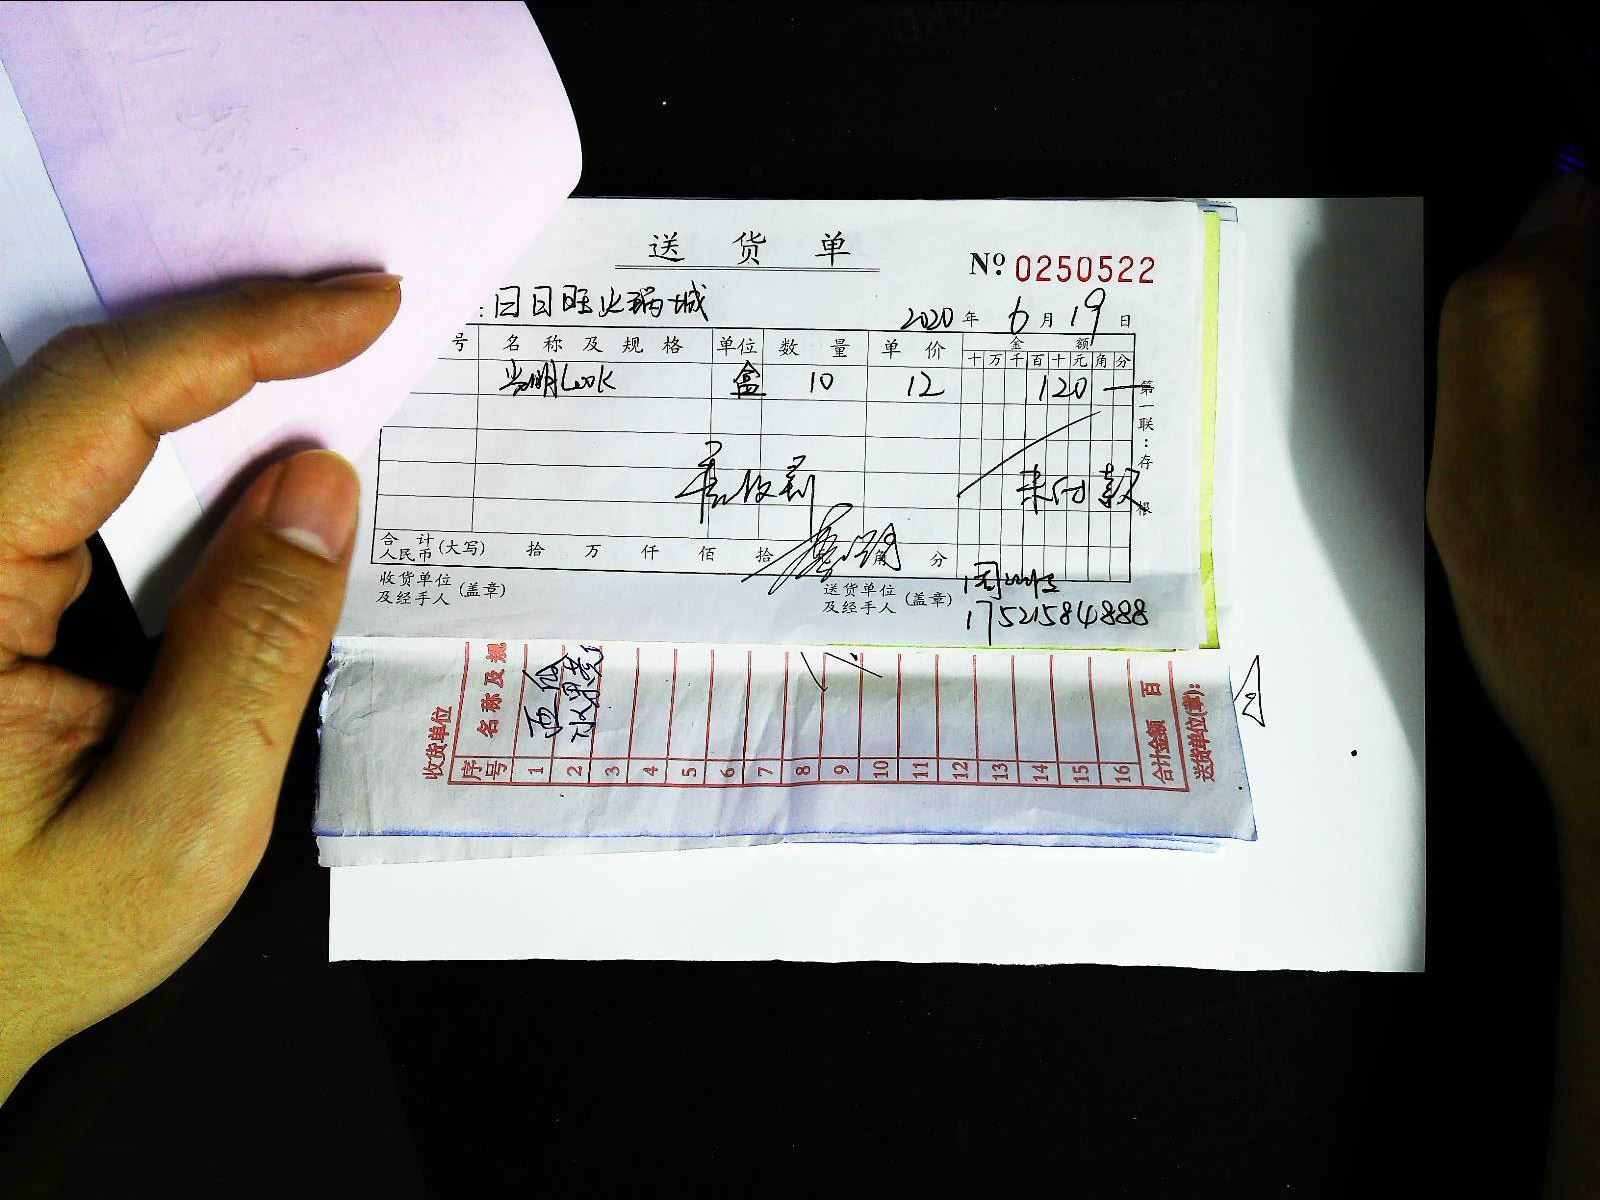 送货单
Nº 0250522
:日日旺业瑞城
2020年6月19日
号 名称及规格 单位 数量 单价 金额
十万千百十元角分
光明Look 盒 10 12 120 —
未付款
第一联:存根
合计人民币(大写) 拾 万 仟 佰 拾 角 分
收货单位及经手人(盖章) 送货单位及经手人(盖章)
17521584888
收货单位
序号 名称及规
1 西
2 水果
3
4
5
6
7
8
9
10
11
12
13
14
15
16
合计金额 百
送货单位(章):